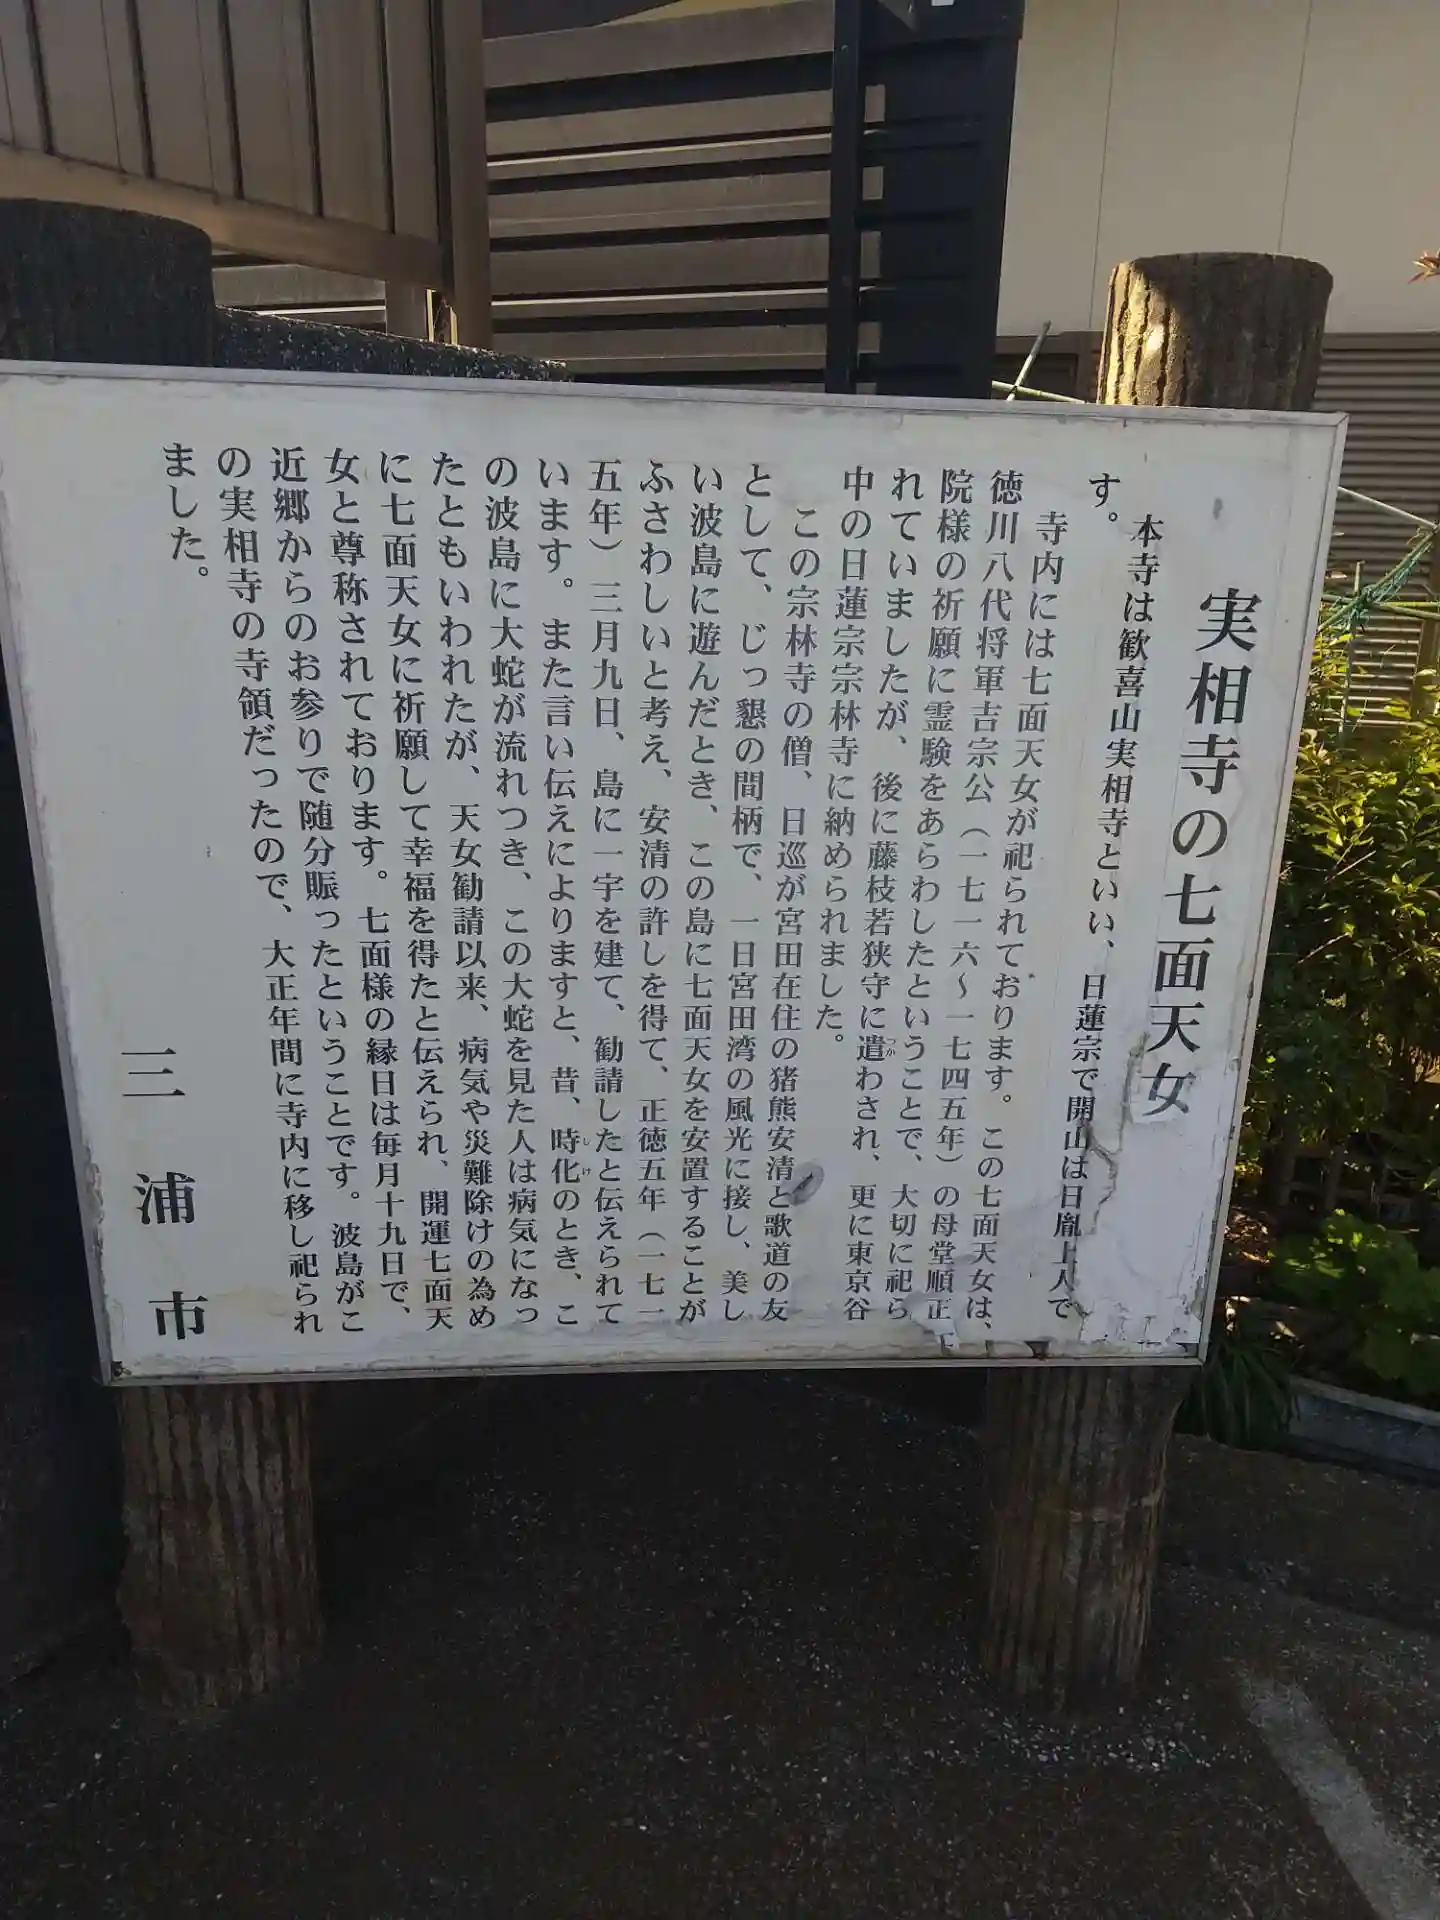 実相寺の七面天女
本寺は歓喜山実相寺といい、日蓮宗で開山は日胤上人で
す。
寺内には七面天女が祀られております。この七面天女は、
徳川八代将軍吉宗公（一七一六〜一七四五年）の母堂順正
院様の祈願に霊験をあらわしたということで、大切に祀ら
れていましたが、後に藤枝若狭守に遣わされ、更に東京谷
つか
中の日蓮宗宗林寺に納められました。
この宗林寺の僧、日巡が宮田在住の猪熊安清と歌道の友
として、じっ懇の間柄で、一日宮田湾の風光に接し、美し
い波島に遊んだとき、この島に七面天女を安置することが
ふさわしいと考え、安清の許しを得て、正徳五年（一七一
五年）三月九日、島に一宇を建て、勧請したと伝えられて
います。また言い伝えによりますと、昔、時化のとき、こ
しけ
の波島に大蛇が流れつき、この大蛇を見た人は病気になっ
たともいわれたが、天女勧請以来、病気や災難除けの為め
に七面天女に祈願して幸福を得たと伝えられ、開運七面天
女と尊称されております。七面様の縁日は毎月十九日で、
近郷からのお参りで随分賑ったということです。波島がこ
の実相寺の寺領だったので、大正年間に寺内に移し祀られ
ました。
三浦市